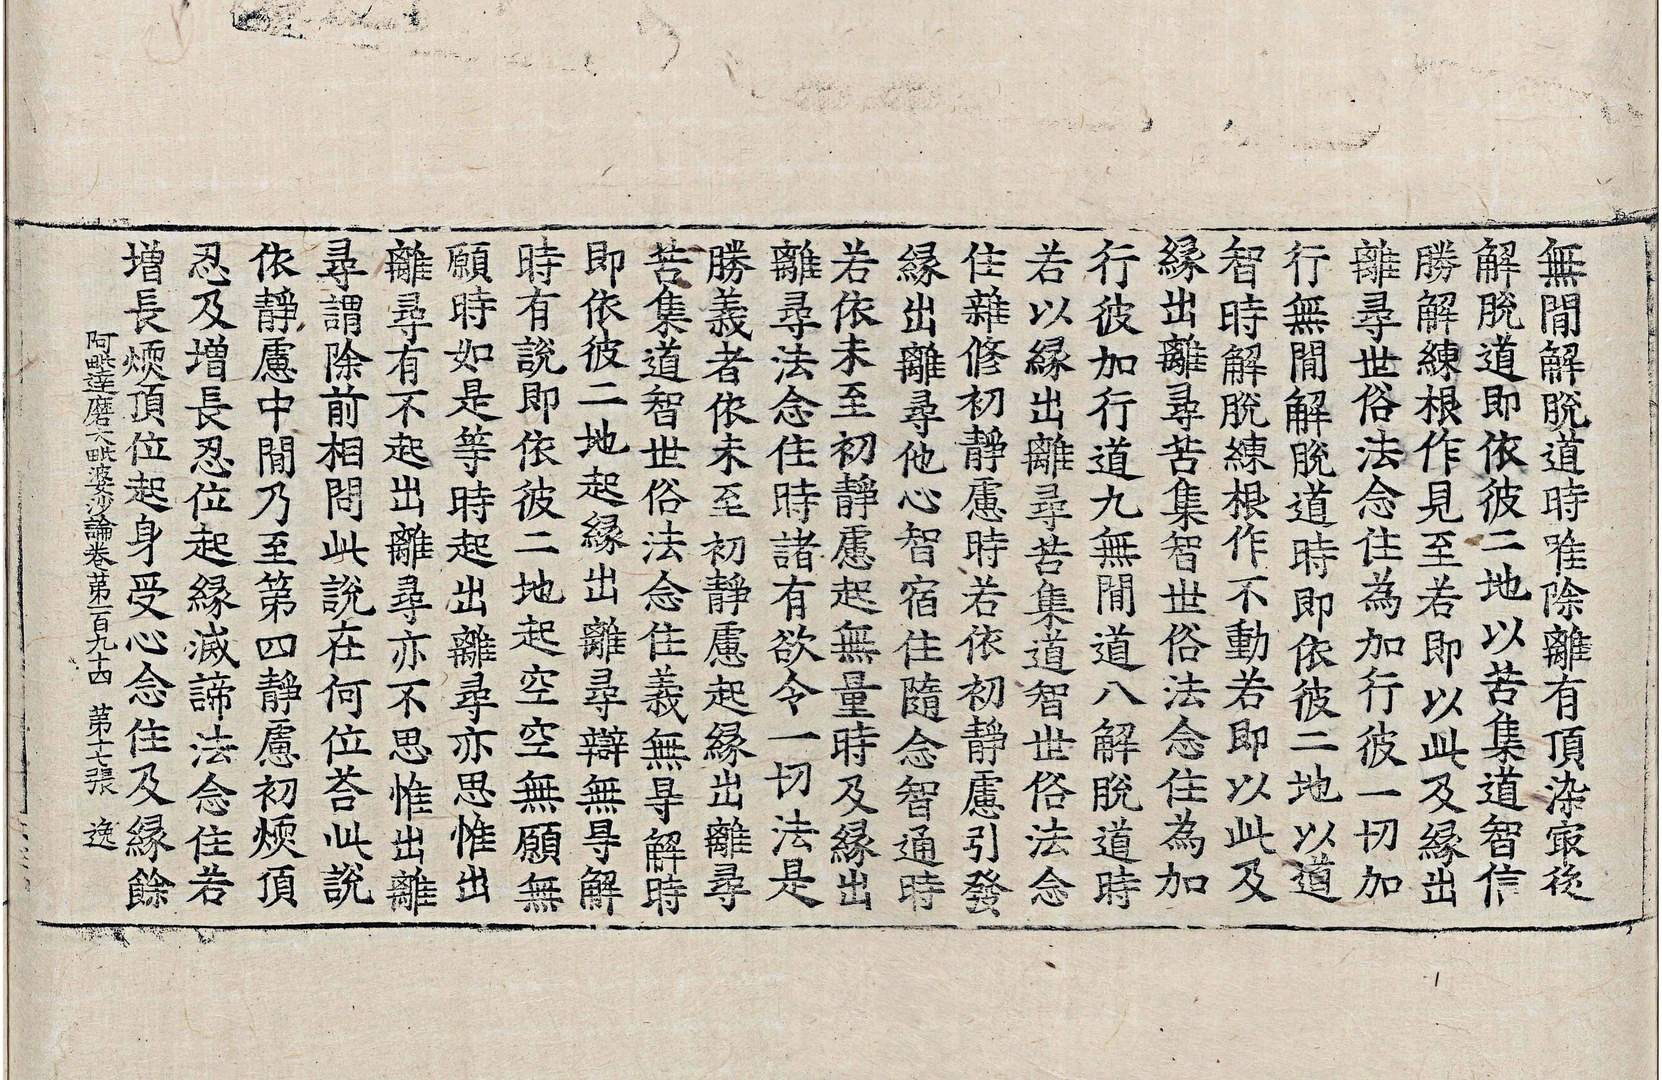 無間解脫道時唯除離有頂染㝡後
解脫道即依彼二地以苦集道智信
勝解練根作見至若即以此及緣出
離尋世俗法念住為加行彼一切加
行無間解脫道時即依彼二地以道
智時解脫練根作不動若即以此及
緣出離尋苦集智世俗法念住為加
行彼加行道九無間道八解脫道時
若以緣出離尋苦集道智世俗法念
住雜修初靜慮時若依初靜慮引發
緣出離尋他心智宿住隨念智通時
若依未至初靜慮起無量時及緣出
離尋法念住時諸有欲令一切法是
勝義者依未至初靜慮起緣出離尋
苦集道智世俗法念住義無㝵解時
即依彼二地起緣出離尋辯無㝵解
時有說即依彼二地起空空無願無
願時如是等時起出離尋亦思惟出
離尋有不起出離尋亦不思惟出離
尋謂除前相問此說在何位荅此說
依靜慮中間乃至第四靜慮初煗頂
忍及增長忍位起緣滅諦法念住若
增長煗頂位起身受心念住及緣餘
阿毗達磨大毗婆沙論卷第一百九十四 第十七張 逸